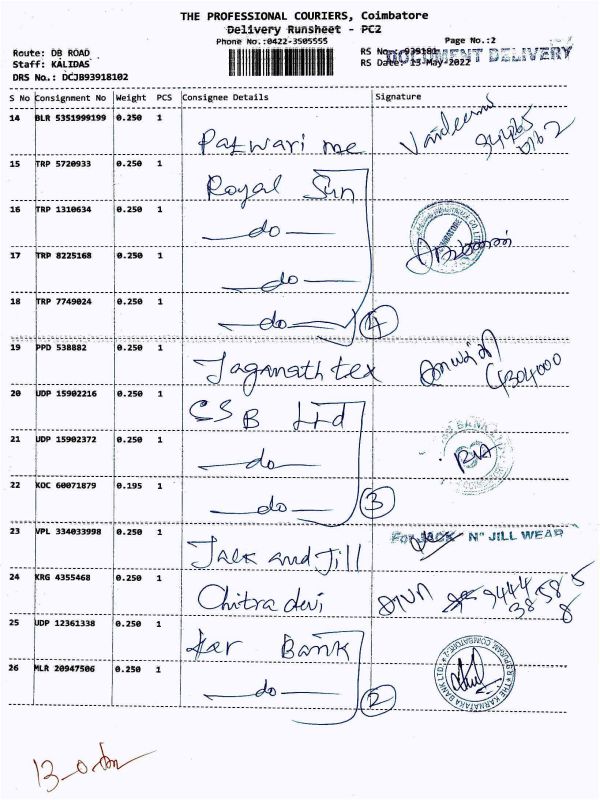 THE PROFESSIONAL COURIERS, Coimbatore
Delivery Runsheet - PC2
Phone No.:0422-3505555
Page No.:2
Route: DB ROAD
RS No.: 939181
Staff: KALIDAS
RS Date: 13-May-2022
DOCUMENT DELIVERY
DRS No.: DCJB93918102
S No Consignment No Weight PCS Consignee Details Signature
14 BLR 5351999199 0.250 1 Patwari me
15 TRP 5720933 0.250 1 Royal Sun
16 TRP 1310634 0.250 1 —do—
17 TRP 8225168 0.250 1 —do—
18 TRP 7749024 0.250 1 —do— 4
19 PPD 538882 0.250 1 Jaganath tex
20 UDP 15902216 0.250 1 CSB Ltd
21 UDP 15902372 0.250 1 —do—
22 KOC 60071879 0.195 1 —do— 3
23 VPL 334033998 0.250 1 Jack and Jill For JACK N' JILL WEAR
24 KRG 4355468 0.250 1 Chitra devi 9444
38585
8
25 UDP 12361338 0.250 1 kar Bank
26 MLR 20947506 0.250 1 —do— 2